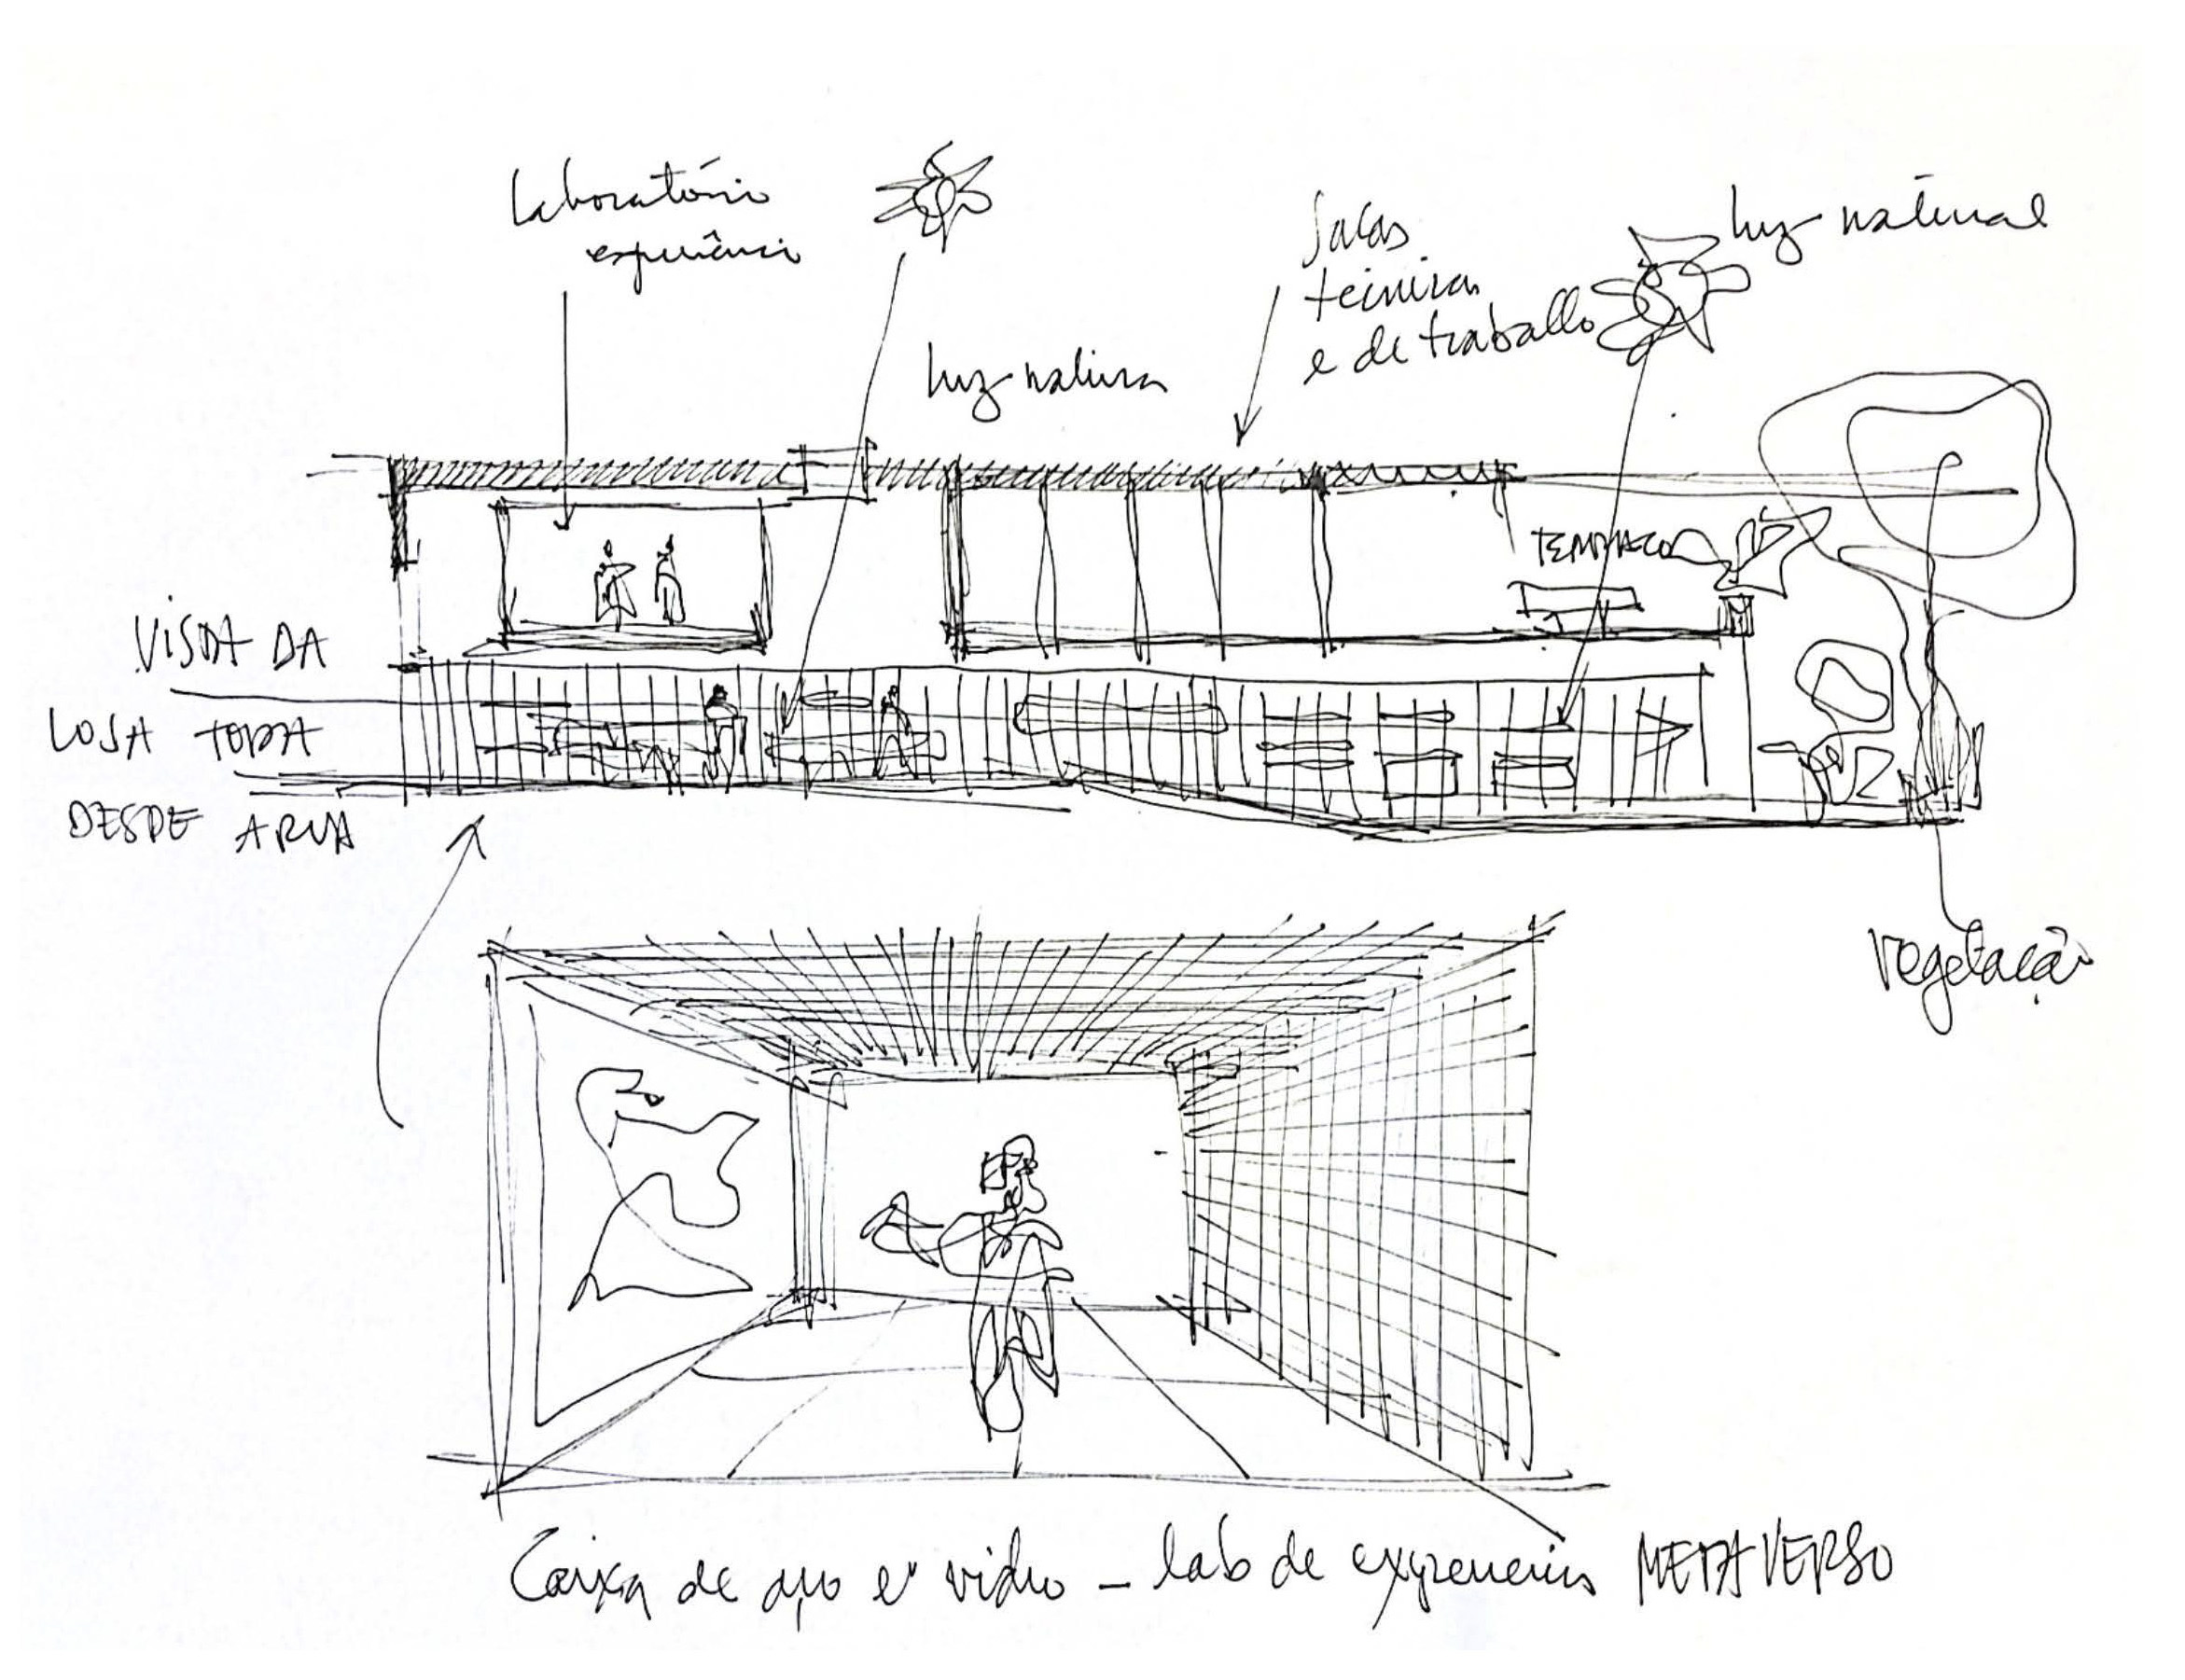 Laboratório
experiência
luz natural
Salas
técnicas
e de trabalho
luz natural
TERRAÇO
VISTA DA
LOJA TODA
DESDE A RUA
Vegetação
Caixa de aço e vidro – lab de experiencias METAVERSO